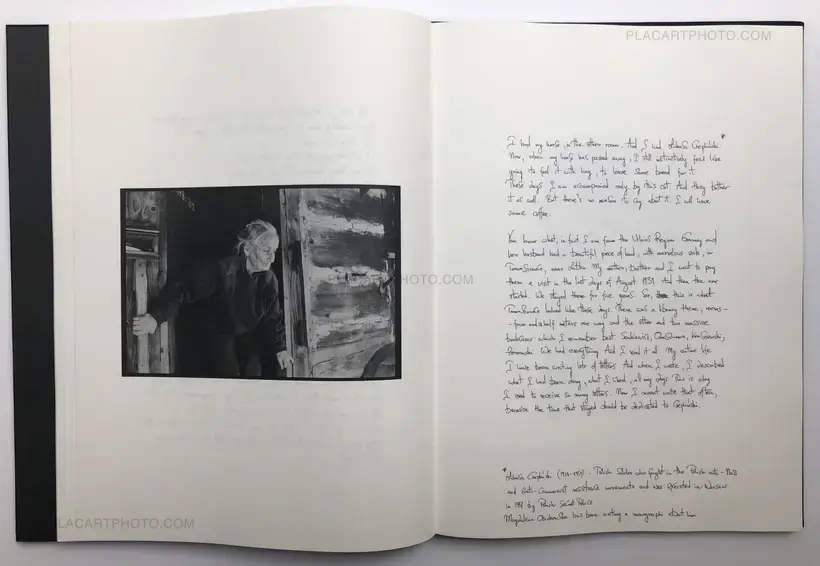 PLACARTPHOTO.COM
I had my horse, in the other room. And I had Łukasz Ciepliński.*
Now, when my horse has passed away, I still instinctively feel like
going to feel it with hay, to leave some bread for it.
These days I am accompanied only by this cat. And they bother
it as well. But there's no reason to cry about it. I will have
some coffee.
You know what, in fact I am from the Vilnius Region. Granny and
her husband had a beautiful piece of land, with marvelous
near My mother, brother and I went to pay
them a visit in the last days of August 1939. And then the war
started. We stayed there for five years. So, this is what
looked like those days. There was a library there, room -
- four and a half meters one way and the other and two massive
bookcases which I remember best Sienkiewicz,
We had everything. And I read it all. My entire life
I have been writing lots of letters. And when I wrote, I described
what I had been doing, what I liked, all my days. This is why
I used to receive so many letters. Now I cannot write that often,
because the time that stayed should be dedicated to Ciepliński.
PLACARTPHOTO.COM
* Łukasz Ciepliński - Polish soldier who fought in the Polish anti-Nazi
and anti-Communist resistance movements and was executed in Warsaw
in 1951 by Polish Secret Police
Magdalena has been writing a monograph about him
LACARTPHOTO.COM